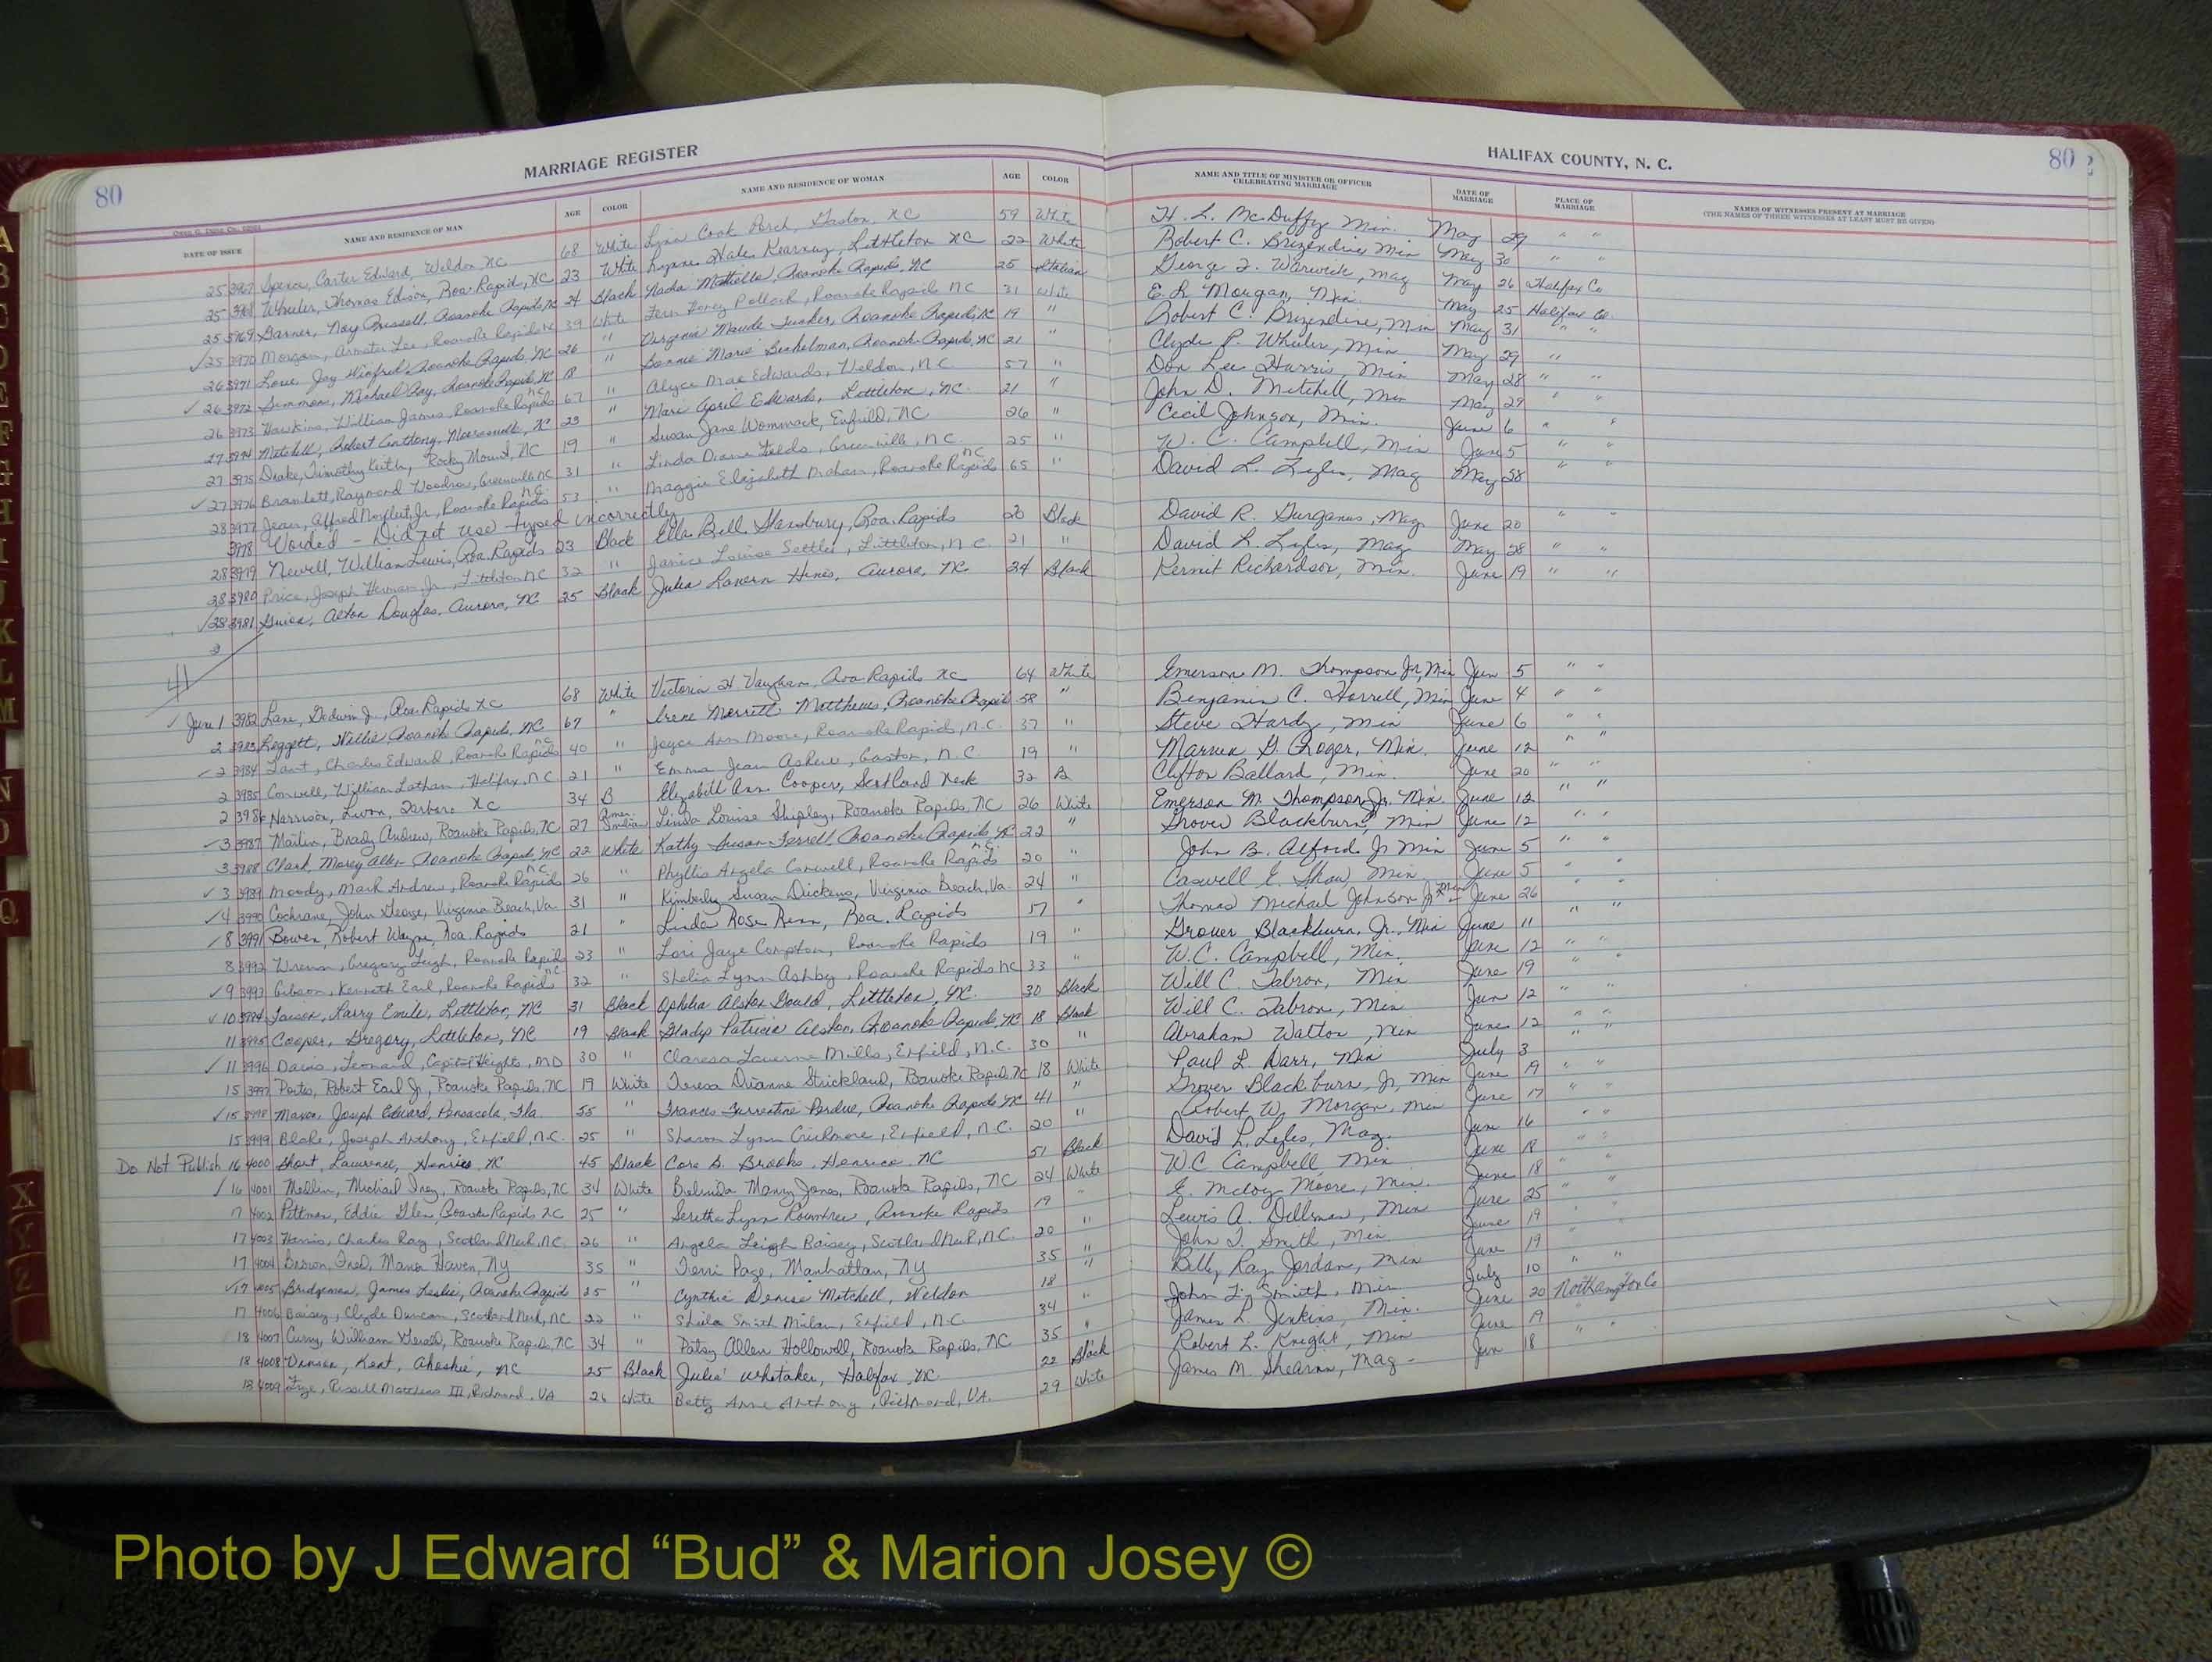 MARRIAGE REGISTER
HALIFAX COUNTY, N. C.
80
80
DATE OF ISSUE NAME AND RESIDENCE OF MAN AGE COLOR NAME AND RESIDENCE OF WOMAN AGE COLOR NAME AND TITLE OF MINISTER OR OFFICER CELEBRATING MARRIAGE DATE OF MARRIAGE PLACE OF MARRIAGE NAMES OF WITNESSES PRESENT AT MARRIAGE (THE NAMES OF THREE WITNESSES AT LEAST MUST BE GIVEN)
25 3967 Spence, Carter Edward, Weldon NC 68 White Cook Gaston, NC 59 White H. L. McDuffy Min. May 29 " "
25 3968 Wheeler, Thomas Edison, Roa. Rapids, NC 23 White Hale Kearney, Littleton NC 22 White Robert C. Brizendine, Min May 30 " "
25 3969 Barner, Roanoke Rapids, NC 24 Black Nadia Roanoke Rapids, NC 25 Italian George Warwick, Mag May 26 Halifax Co
25 3970 Morgan, Lee, Roanoke Rapids NC 39 White Fern Pollock, Roanoke Rapids NC 31 White E. L. Morgan, Min. May 25 Halifax Co.
26 3971 Jay Winfred, Roanoke Rapids, NC 26 " Virginia Maude Tucker, Roanoke Rapids, NC 19 " Robert C. Brizendine, Min May 31 " "
26 3972 Simmons, Michael Ray, Roanoke Rapids NC 18 " Bonnie Marie Roanoke Rapids, NC 21 " Clyde P. Wheeler, Min May 29 "
26 3973 Hawkins, William James, Roanoke Rapids NC 67 " Alyce Mae Edwards, Weldon, NC 57 " Don Lee Harris, Min May 28 " "
27 3974 Mitchell, Robert Anthony, NC 23 " April Edwards, Littleton, NC. 21 " John D. Mitchell, Min May 29 " "
27 3975 Drake, Timothy Keith, Rocky Mount, NC 19 " Susan Jane Wommack, Enfield, NC 26 " Cecil Johnson, Min. June 6 " "
27 3976 Bramlett, Raymond Woodrow, Greenville NC 31 " Linda Diane Fields, Greenville, N.C. 25 " W. C. Campbell, Min June 5 " "
28 3977 Alfred Jr, Roanoke Rapids NC 53 " Maggie Elizabeth Roanoke Rapids NC 65 " David L. Lyles, Mag May 28 " "
3978 Voided - Did not use - typed incorrectly
28 3979 Newell, William Lewis, Roa. Rapids 23 Black Ella Bell Stansbury, Roa. Rapids 20 Black David R. Gurganus, Mag June 20 " "
28 3980 Price, Joseph Herman, Jr., Littleton NC 32 " Janice Louise Settles, Littleton, N.C. 21 " David L. Lyles, Mag May 28 " "
28 3981 Alton Douglas, Aurora, NC 25 Black Julia Lavern Hines, Aurora, NC 24 Black Kermit Richardson, Min. June 19 " "
41
June 1 3982 Lane, Godwin J., Roa. Rapids NC 68 White Victoria H Vaughan, Roa Rapids NC 64 White Emerson M. Thompson Jr, Min Jun 5 " "
2 3983 Leggett, Willie, Roanoke Rapids, NC 67 " Irene Merritt Matthews, Roanoke Rapids 58 " Benjamin C. Harrell, Min June 4 " "
2 3984 Charles Edward, Roanoke Rapids NC 40 " Joyce Ann Moore, Roanoke Rapids, N.C. 37 " Steve Hardy, Min June 6 " "
2 3985 Conwell, William Latham, Halifax, N.C 21 " Emma Jean Askew, Gaston, N.C 19 " Marvin G. Min. June 12 " "
2 3986 Harrison, Tarboro NC 34 B Elizabeth Ann Cooper, Scotland Neck 32 B Clifton Ballard, Min. June 20 " "
3 3987 Martin, Brady Andrew, Roanoke Rapids, NC 27 Amer. Indian Linda Louise Shipley, Roanoke Rapids, NC 26 White Emerson M. Thompson Jr. Min. June 12 " "
3 3988 Clark, Roanoke Rapids, NC 22 White Kathy Susan Ferrell, Roanoke Rapids, NC 22 " Grover Blackburn, Min June 12 " "
3 3989 Moody, Mark Andrew, Roanoke Rapids NC 26 " Phyllis Angela Roanoke Rapids N.C. 20 " John B. Alford Jr Min June 5 " "
4 3990 Cochrane, John George, Virginia Beach, Va. 31 " Kimberly Susan Dickens, Virginia Beach, Va. 24 " Caswell E. Shaw, Min June 5 " "
8 3991 Bowen, Robert Wayne, Roa. Rapids 21 " Linda Rose Roa. Rapids 17 " Thomas Michael Johnson Jr Min June 26 " "
8 3992 Wrenn, Gregory Leigh, Roanoke Rapids 23 " Lori Jaye Compton, Roanoke Rapids 19 " Grover Blackburn, Jr., Min June 11 " "
9 3993 Gibson, Kenneth Earl, Roanoke Rapids NC 32 " Shelia Lynn Ashby, Roanoke Rapids NC 33 " W.C. Campbell, Min. June 12 " "
10 3994 Larry Emile, Littleton, NC 31 Black Ophelia Alston Gould, Littleton, NC. 30 Black Will C. Tabron, Min June 19 " "
11 3995 Cooper, Gregory, Littleton, NC 19 Black Gladys Patricia Alston, Roanoke Rapids, NC 18 Black Will C. Tabron, Min Jun 12 " "
11 3996 Leonard, Capitol Heights, MD 30 " Claresa Laverne Mills, Enfield, N.C. 30 " Abraham Walton, Min June 12 " "
15 3997 Robert Earl Jr, Roanoke Rapids, NC 19 White Teresa Dianne Strickland, Roanoke Rapids, NC 18 White Paul L. Darr, Min July 3 " "
15 3998 Joseph Edward, Pensacola, Fla. 55 " Frances Turrentine Perdue, Roanoke Rapids NC 41 " Grover Blackburn, Jr, Min June 19 " "
15 3999 Blake, Joseph Anthony, Enfield, N.C. 25 " Sharon Lynn Enfield, N.C. 20 " Robert W. Morgan, Min June 17 " "
Do Not Publish 16 4000 Short, Lawrence, Henrico NC 45 Black Cora S. Brooks, Henrico, NC 51 Black David L. Lyles, Mag. Jun 16 " "
16 4001 Medlin, Michael Roanoke Rapids, NC 34 White Belinda Jones, Roanoke Rapids, NC 24 White W.C. Campbell, Min June 18 " "
17 4002 Pittman, Eddie Glen, Roanoke Rapids NC 25 " Lynn Rountree, Roanoke Rapids 19 " E. McCoy Moore, Min. June 18 " "
17 4003 Harris, Charles Ray, Scotland Neck, NC. 26 " Angela Leigh Baisey, Scotland Neck, N.C. 20 " Lewis A. Dillman, Min June 25 " "
17 4004 Brown, Fred, Manor Haven, NY 35 " Terri Page, Manhattan, NY 35 " John T. Smith, Min June 19 " "
17 4005 Bridgeman, James Leslie, Roanoke Rapids 25 " Cynthia Denise Mitchell, Weldon 18 " Billy Ray Jordan, Min June 19 " "
17 4006 Baisey, Clyde Duncan, Scotland Neck, NC 22 " Sheila Smith Milan, Enfield, N.C. 34 " John T. Smith, Min July 10 " "
18 4007 William Roanoke Rapids, NC 34 " Patsy Allen Hollowell, Roanoke Rapids, NC 35 " James L. Jenkins, Min. June 20 Northampton Co
18 4008 Kent, Ahoskie, NC 25 Black Julia Whitaker, Halifax, NC 22 Black Robert L. Knight, Min June 19 " "
18 4009 Russell Matthew III, Richmond, VA 26 White Betty Anne Anthony, Richmond, VA. 29 White James M. Shearin, Mag - Jun 18
Photo by J Edward “Bud” & Marion Josey ©